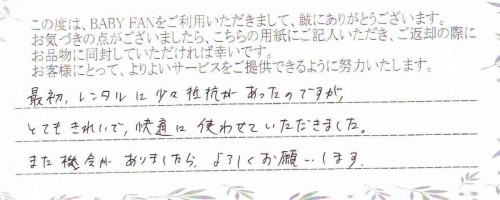 この度は、BABY FANをご利用いただきまして、誠にありがとうございます。
お気づきの点がございましたら、こちらの用紙にご記入いただき、ご返却の際に
お品物に同封していただければ幸いです。
お客様にとって、よりよいサービスをご提供できるように努力いたします。
最初、レンタルに少々抵抗があったのですが、
とてもきれいで、快適に使わせていただきました。
また機会がありましたら、よろしくお願いします。